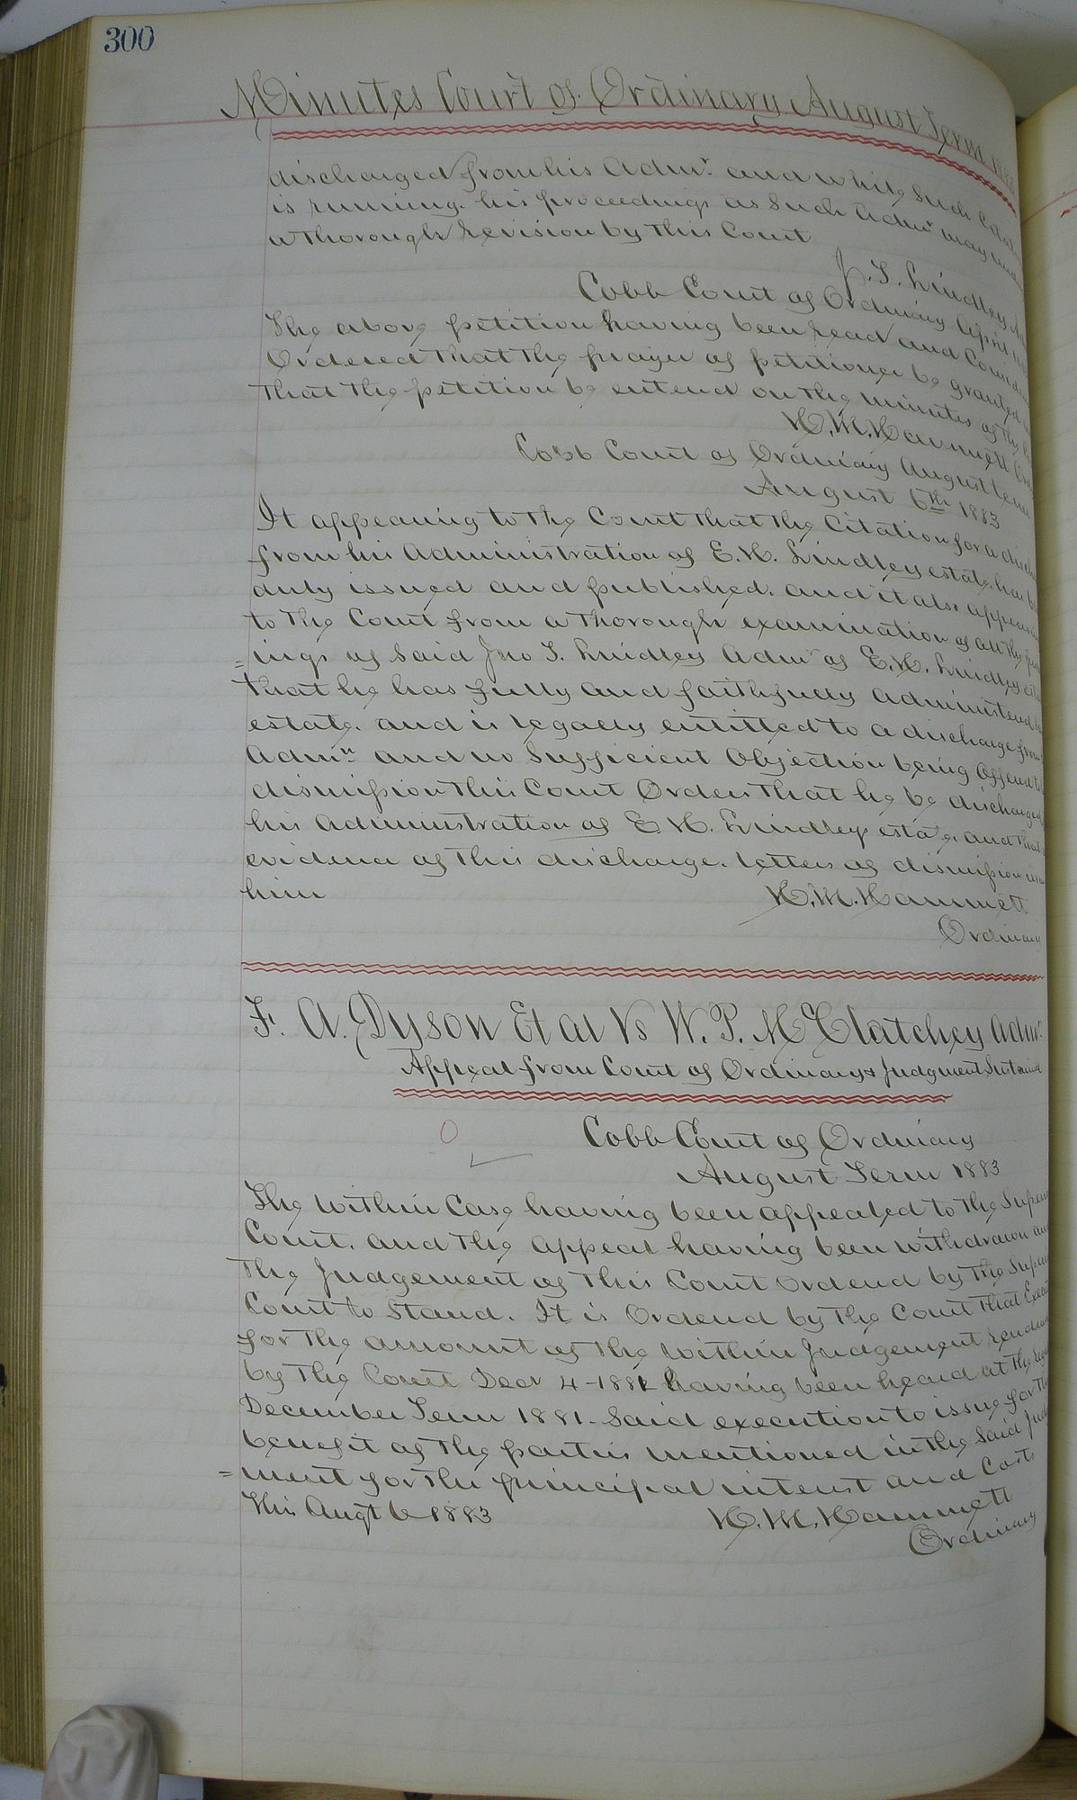 300
Minutes Court of Ordinary August Term
discharged from his Admr. and while such
is running. his proceedings as Such Admr may
a thorough revision by this Court
J. T. Lindley
Cobb Court of Ordinary April
The above petition having been read and
Ordered that the prayer of petitioner be granted
that the petition be enterd on the minutes of the
H. M. Hammett
Cobb Court of Ordinary August Term
August 6th 1883
It appearing to the Court that the Citation for a
from his Administration of E. H. Lindley estate. has
duly issued and published. and it also
to the Court from a thorough examination of all the
=ings of Said Jno T. Lindley Admr of E. H. Lindley
that he has fully and faithfully administered
estate. and is legally entitled to a discharge from
Admn and no Sufficient Objection being offered
dismission this Court Orders that he be discharged
his Administration of E H. Lindleys estate. and that
evidence of this discharge. letters of dismission
him H. M. Hammett
Ordinary
F. A. Dyson Et al Vs W. P. McClatchey Admr.
Appeal from Court of Ordinary & Judgment Sustained
Cobb Court of Ordinary
August Term 1883
The within Case having been appealed to the
Court. and the appeal having been withdrawn
the Judgement of this Court Orderd by the
Court to Stand. It is Orderd by the Court that
for the amount of the within Judgement
by the Court Decr 4-1882 having been heard at the
December Term 1881. Said execution to issue for the
benefit of the parties mentioned in the Said
=ment for the principal interest and Costs
This Augt 6 1883 H. M. Hammett
Ordinary